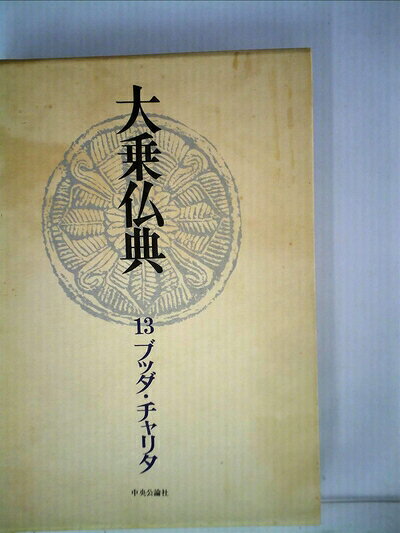 大乗仏典
13 ブッダ・チャリタ
中央公論社